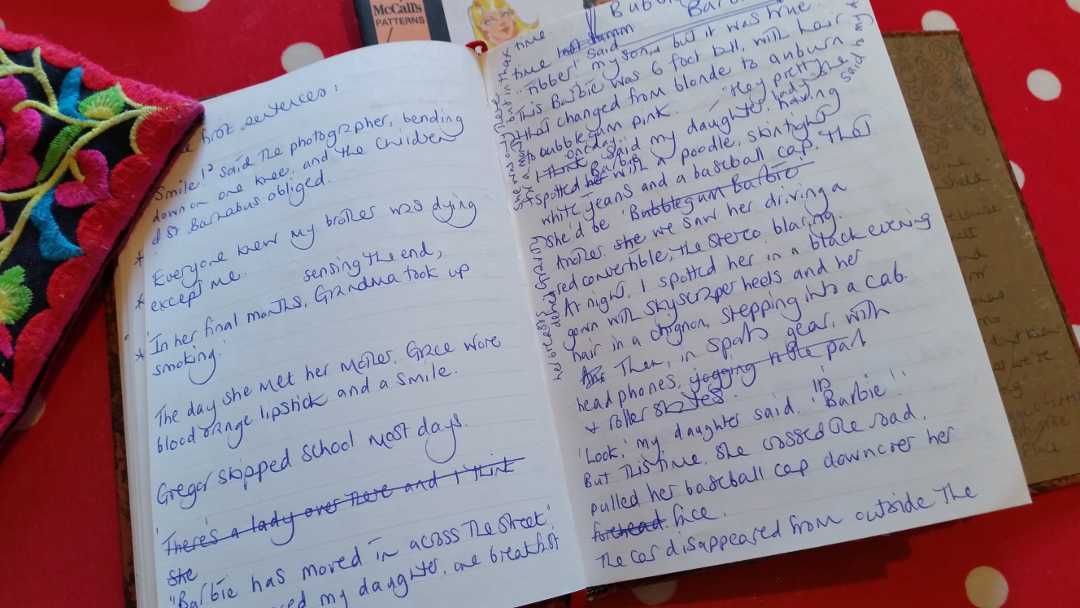 McCall's
PATTERNS
first sentences:
Smile!' said the photographer, bending
down on one knee, and the children
of St Barnabus obliged.
* Everyone knew my brother was dying
* except me.
sensing the end,
* In her final months, Grandma took up
smoking.
The day she met her mother, Grace wore
blood orange lipstick and a smile.
Gregor skipped school most days.
'There's a lady over there and I think
she
"Barbie has moved in across the street'
my daughter, one breakfast
Barbie
time
time
'Fibber!' said
my son, but it was true.
This Barbie was 6 foot tall, with hair
that changed from blonde to auburn
to bubblegum pink.
one day.
I think said my daughter, having
spotted her with a poodle, skintight
white jeans and a baseball cap, that
she'd be 'Bubblegum Barbie'
Another, she we saw her driving a
red convertible, the stereo blaring.
At night, I spotted her in a black evening
gown with skyscraper heels and her
hair in a chignon, stepping into a cab.
Then, in sports gear, with
headphones, jogging in the park
+ roller skates.
'Look,' my daughter said, 'Barbie!'
But this time, she crossed the road,
pulled her baseball cap down over her
forehead. face.
The car disappeared from outside the